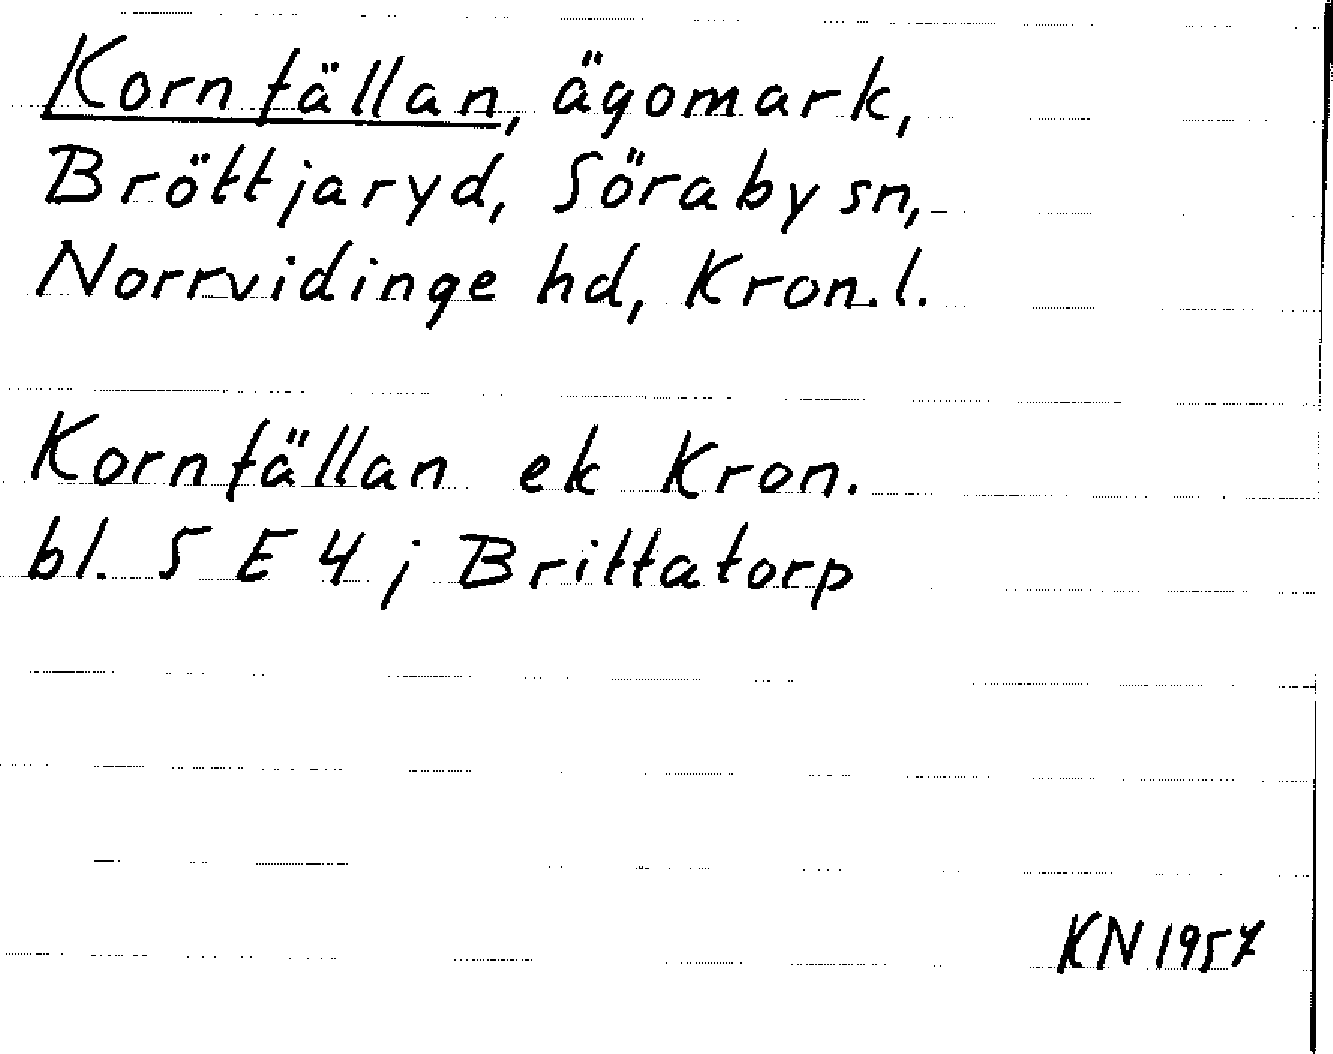 Kornfällan, ägomark,
Bröttjaryd, Söraby sn,
Norrvidinge hd, Kron.l.
Kornfällan ek Kron.
bl. 5 E 4 ; Brittatorp
KN 1957